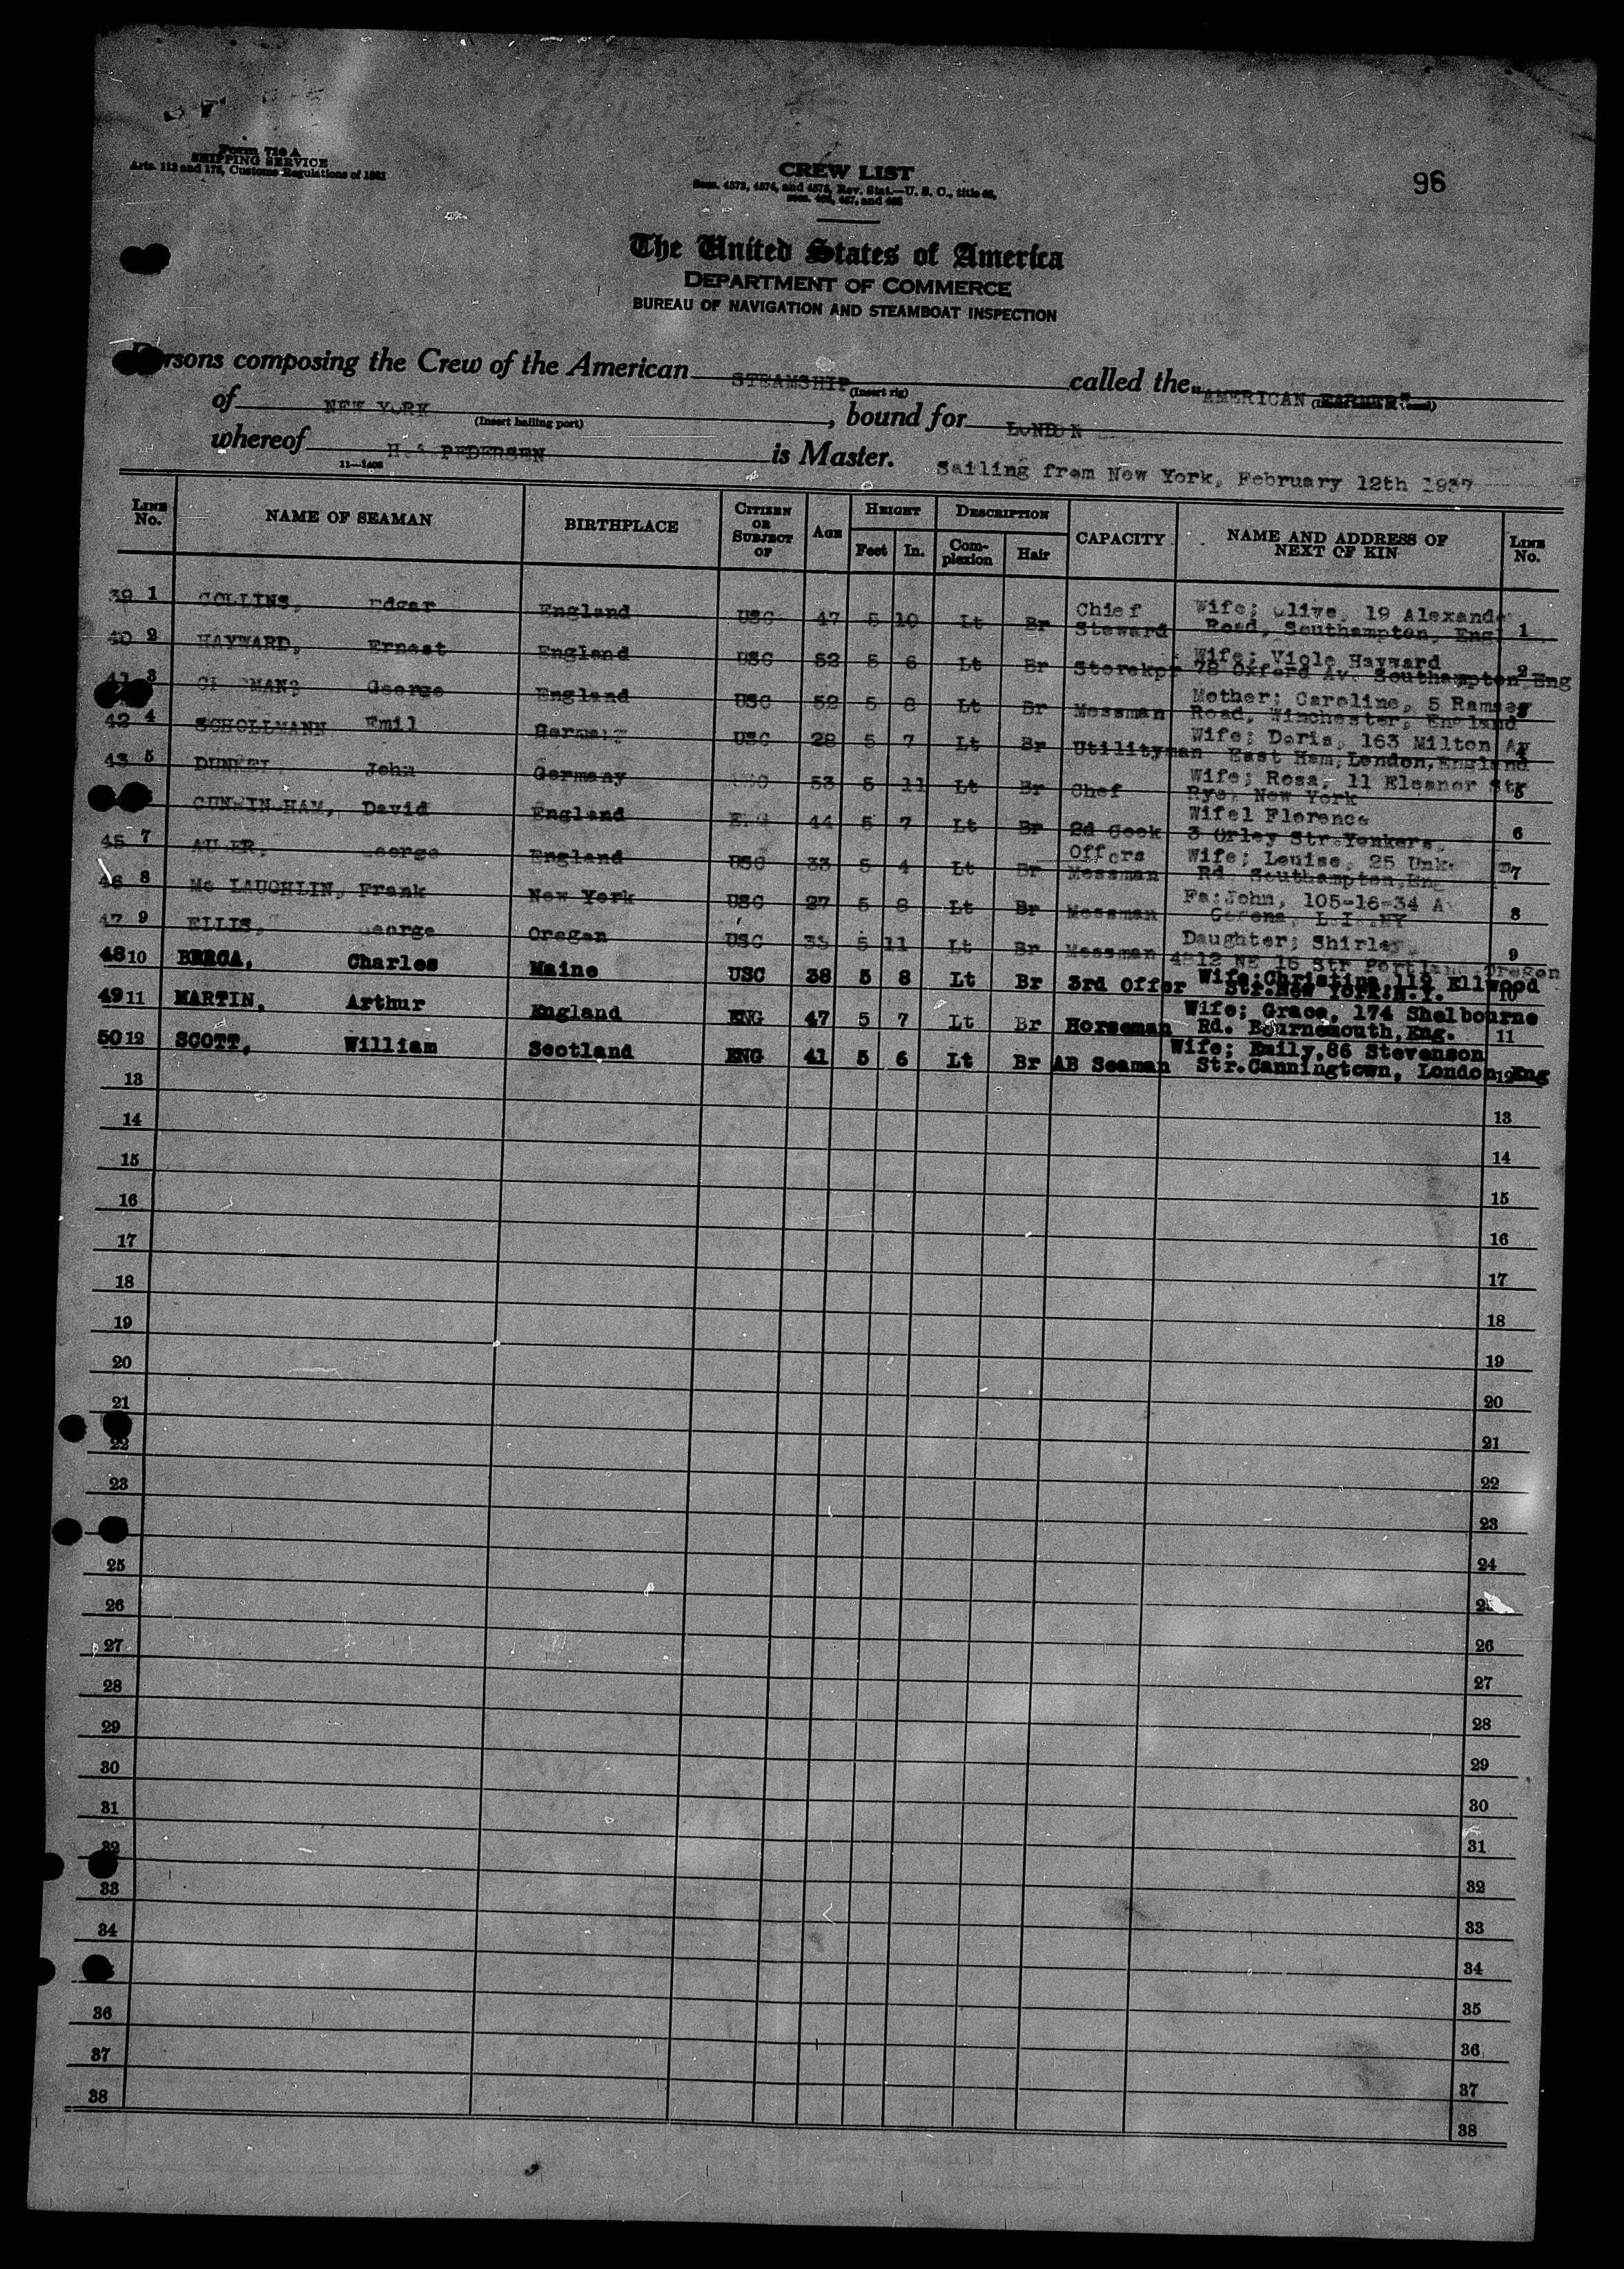 Form 710 A
SHIPPING SERVICE
Arts. 112 and 175, Customs Regulations of 1931
CREW LIST
Secs. 4573, 4574, and 4575, Rev. Stat.—U. S. C., title 46,
secs. 466, 467, and 468
96
The United States of America
DEPARTMENT OF COMMERCE
BUREAU OF NAVIGATION AND STEAMBOAT INSPECTION
Persons composing the Crew of the American STEAMSHIP (Insert rig) called the "AMERICAN FARMER"
of NEW YORK (Insert hailing port), bound for LONDON
whereof PEDERSEN is Master. Sailing from New York, February 12th 1937
LINE No. NAME OF SEAMAN BIRTHPLACE CITIZEN OR SUBJECT OF AGE HEIGHT Feet In. DESCRIPTION Complexion Hair CAPACITY NAME AND ADDRESS OF NEXT OF KIN LINE No.
39 1 COLLINS, Edgar England USC 47 5 10 Lt Br Chief Steward Wife; Olive, 19 Alexande Road, Southampton, Eng 1
40 2 HAYWARD, Ernest England USC 52 5 6 Lt Br Storekpr Wife; Viole Hayward 78 Oxford Av. Southampton Eng 2
41 3 George England USC 52 5 8 Lt Br Messman Mother; Caroline, 5 Ramsey Road, Winchester, England
42 4 SCHOLLMANN Emil Germany USC 28 5 7 Lt Br Utilityman Wife; Doris, 163 Milton Av East Ham, London, England 4
43 5 DUNKEL John Germany 53 5 11 Lt Br Chef Wife; Rosa, 11 Eleanor Str Rye, New York 5
CUNNINGHAM, David England ENG 44 5 7 Lt Br 2d Cook Wifel Florence 3 Orley Str. Yonkers, 6
45 7 George England USC 33 5 4 Lt Br Offcrs Messman Wife; Louise, 25 Rd. Southampton, Eng 7
46 8 Mc LAUGHLIN, Frank New York USC 27 5 8 Lt Br Messman Fa; John, 105-16-34 Av Corona, L.I. NY 8
47 9 ELLIS, George Oregon USC 35 5 11 Lt Br Messman Daughter; Shirley, 4812 NE 16 Str Portland Oregon 9
48 10 BERCA, Charles Maine USC 38 5 8 Lt Br 3rd Offer Wife; Christina, 119 Ellwood Str. New York. N.Y. 10
49 11 MARTIN, Arthur England ENG 47 5 7 Lt Br Horseman Wife; Grace, 174 Shelbourne Rd. Bournemouth, Eng. 11
50 12 SCOTT, William Scotland ENG 41 5 6 Lt Br AB Seaman Wife; Emily, 86 Stevenson Str. Canningtown, London Eng 12
13 13
14 14
15 15
16 16
17 17
18 18
19 19
20 20
21 21
22 22
23 23
24
25 25
26 26
27 27
28 28
29 29
30 30
31 31
32 32
33 33
34 34
35
36 36
37 37
38 38